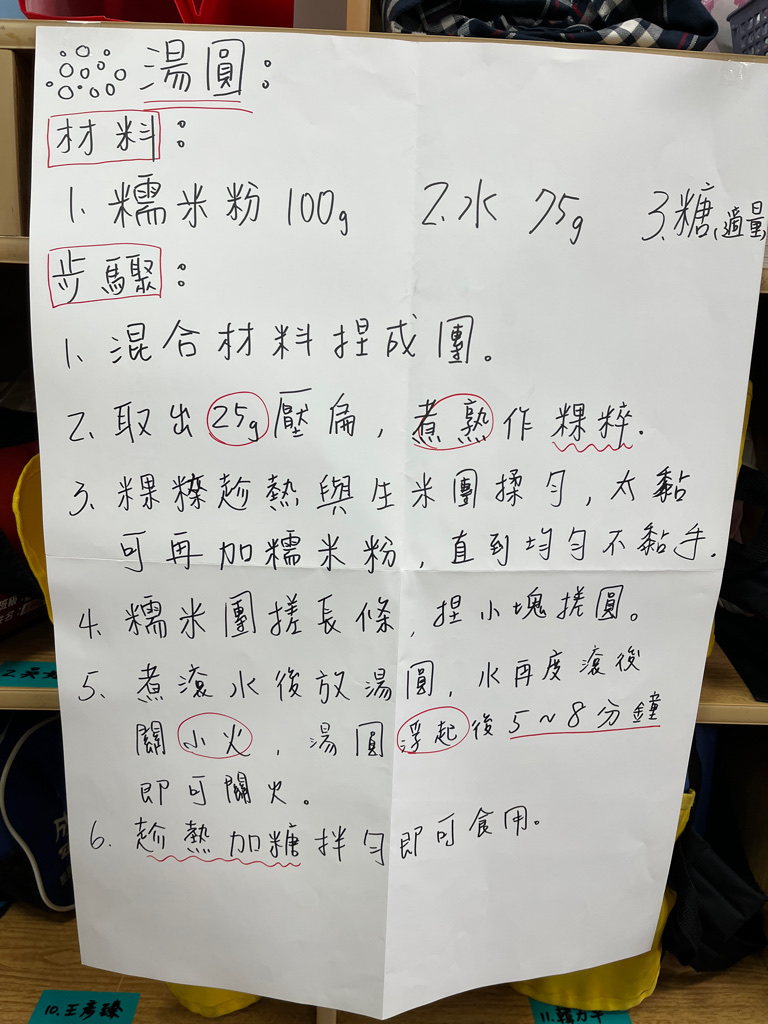 湯圓：
材料：
1. 糯米粉 100g 2. 水 75g 3. 糖(適量)
步驟：
1. 混合材料捏成團。
2. 取出25g壓扁，煮熟作粿粹.
3. 粿糅趁熱與生米團揉勻，太黏
可再加糯米粉，直到均勻不黏手.
4. 糯米團搓長條，捏小塊搓圓。
5. 煮滾水後放湯圓，水再度滾後
關小火，湯圓浮起後5~8分鐘
即可關火。
6. 趁熱加糖拌勻即可食用。
10. 王彥臻